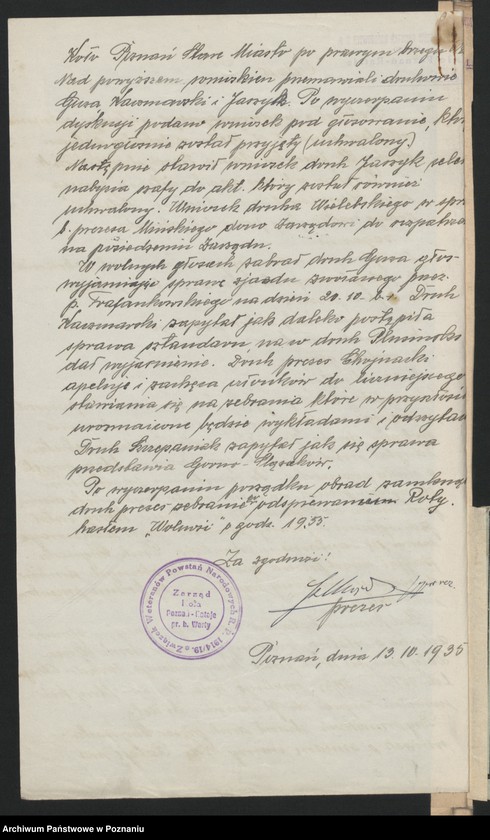 Koło Poznań Stare Miasto po prawym brzegu
Nad powyższem wnioskiem przemawiali druhowie
Gjera Kaczmarski i Jarzyk. Po wyczerpaniu
dyskusji podano wniosek pod głosowanie,
jednogłośnie został przyjęty (uchwalony.)
Następnie stawił wniosek druh Jarzyk celem
nabycia szafy do akt. który został również
uchwalony. Wniosek druha Wielebskiego w
b. prezesa dano Zarządowi do
na posiedzeniu Zarządu.
W wolnych głosach zabrał druh Gjera głos
wyjaśniając sprawę zjazdu zwołanego przez
p. na dzień 20. 10. b. r. Druh
Kaczmarski zapytał jak daleko postąpiła
sprawa sztandaru na co druh
dał wyjaśnienie. Druh prezes Chojnacki
apeluje i zachęca członków do liczniejszego
stawiania się na zebrania które w przyszłości
urozmaicone będzie wykładami i
Druh Szczepaniak zapytał jak się sprawa
przedstawia Górno-Ślązaków.
Po wyczerpaniu porządku obrad
druh prezes zebranie odśpiewaniem Roty.
hasłem „Wolność” o godz. 19.35.
Za zgodność!
prezes
Związek Weteranów Powstań Narodowych R. P. 1914/19.
Zarząd
Koła
Poznań-Rataje
pr. b. Warty
Poznań, dnia 13. 10. 1935
Archiwum Państwowe w Poznaniu